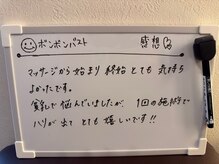 ボンボンバスト 感想
マッサージから始まり 終始 とても 気持ち
よかったです。
貧乳で悩んでいましたが、1回の施術で
ハリが出て とても 嬉しいです!!